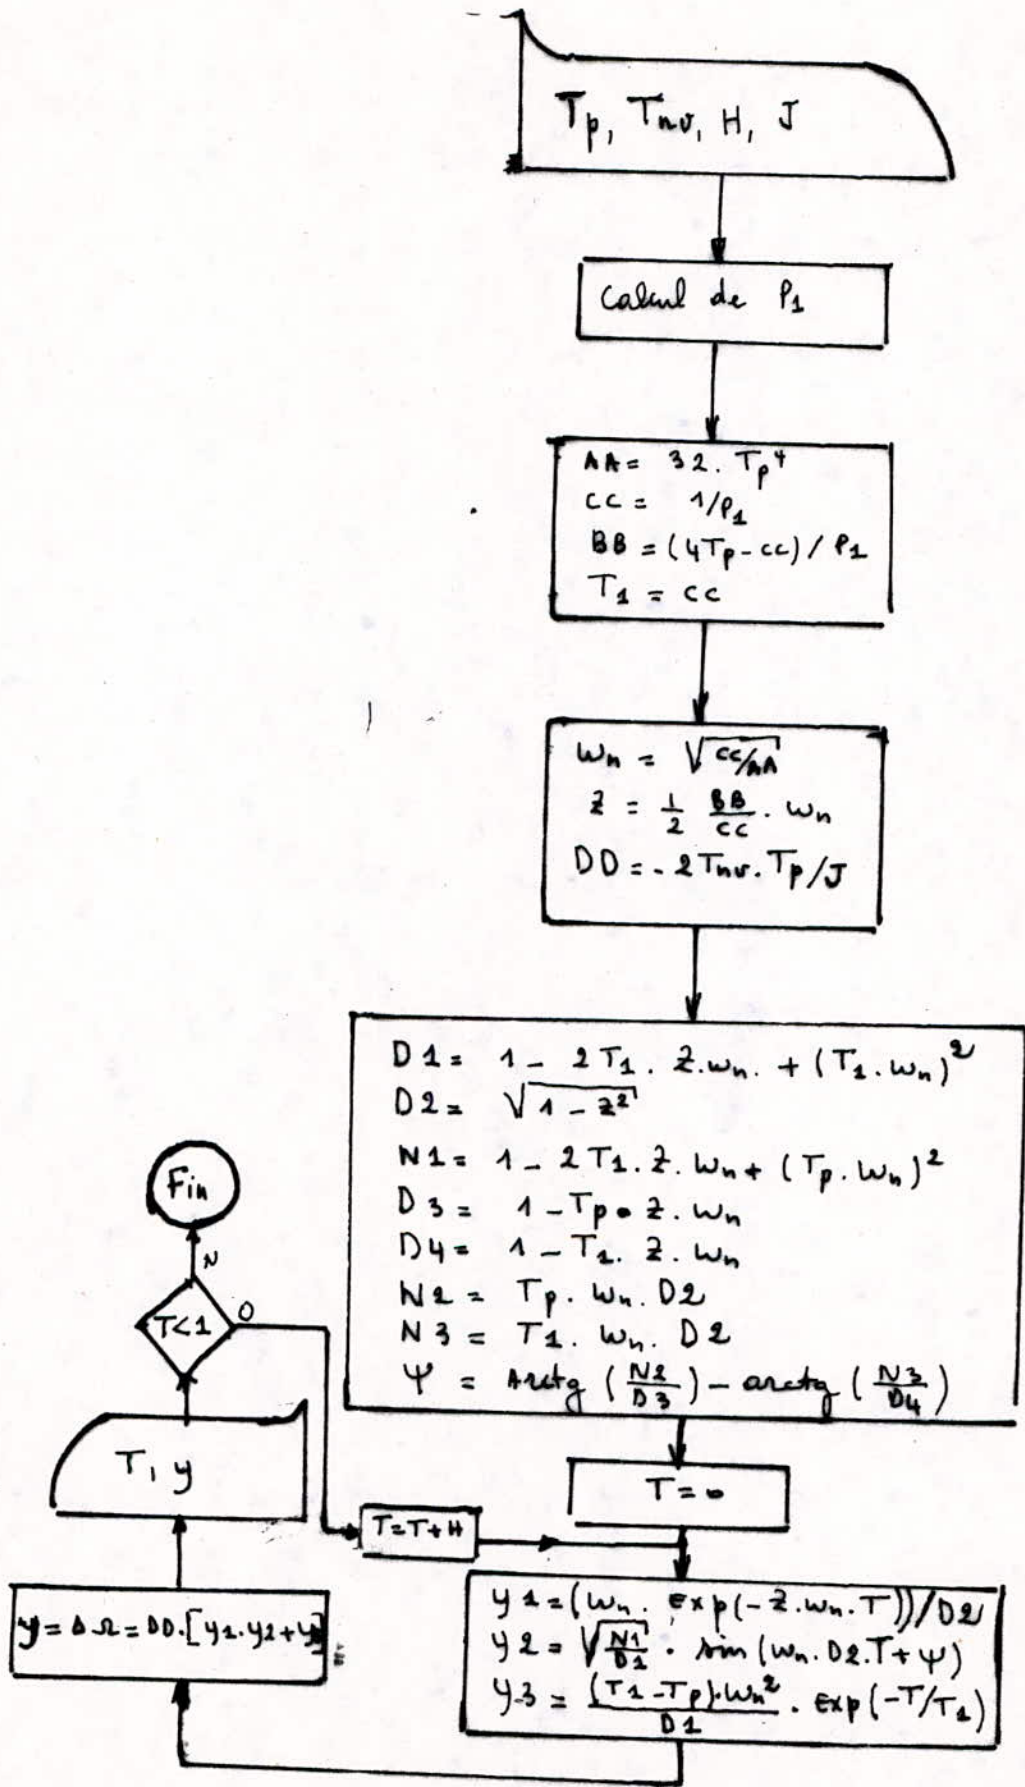 Tp, Tnv, H, J
Calcul de P1
AA = 32. Tp⁴
CC = 1/P1
BB = (4Tp - CC) / P1
T1 = CC
ωn = √CC/AA
Z = 1/2 BB/CC . ωn
DD = - 2Tnv. Tp/J
D1 = 1 - 2T1. Z.ωn. + (T1.ωn)²
D2 = √1 - Z²
N1 = 1 - 2T1. Z. ωn + (Tp.ωn)²
D3 = 1 - Tp. Z. ωn
D4 = 1 - T1. Z. ωn
N2 = Tp. ωn. D2
N3 = T1. ωn. D2
Ψ = Arctg (N2/D3) - arctg (N3/D4)
T = 0
T = T + H
y1 = (ωn. Exp(-Z.ωn.T))/D2
y2 = √N1/D1 . sin (ωn.D2.T + Ψ)
y3 = (T1 - Tp).ωn²/D1 . Exp(-T/T1)
y = ΔΩ = DD.[y1.y2+
T, y
T<1
O
N
Fin